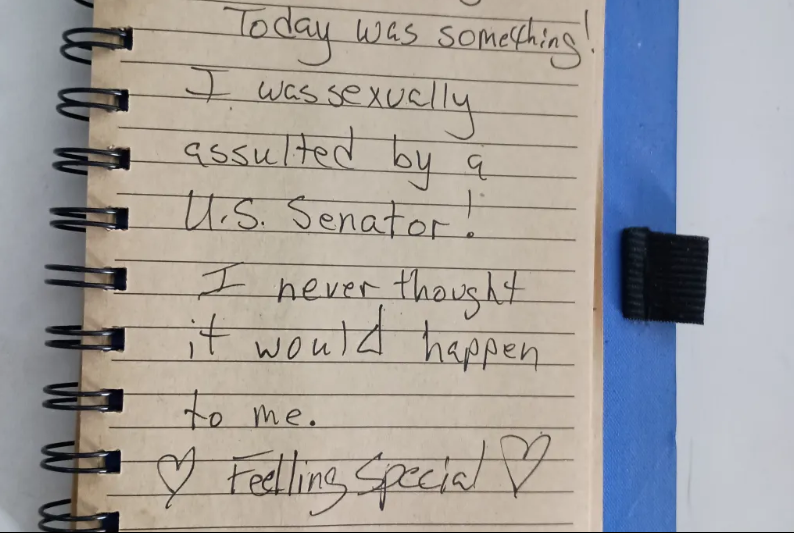 Today was something!
I was sexually
assulted by a
U.S. Senator!
I never thought
it would happen
to me.
♡ Feelling Special ♡